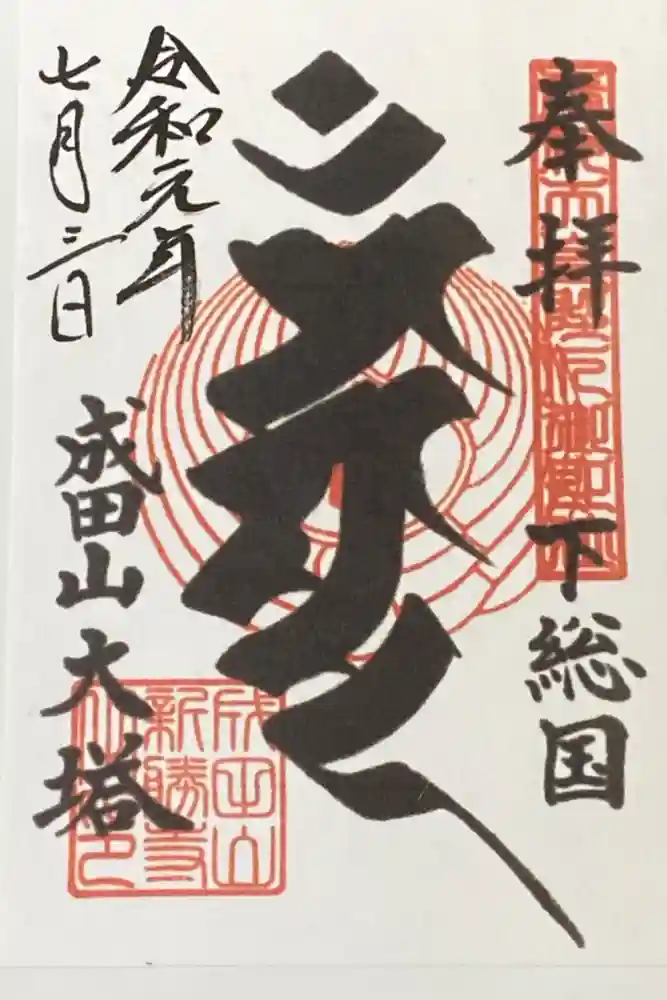 奉拝
下総国
令和元年
七月三日
成田山大塔
成田山
新勝寺